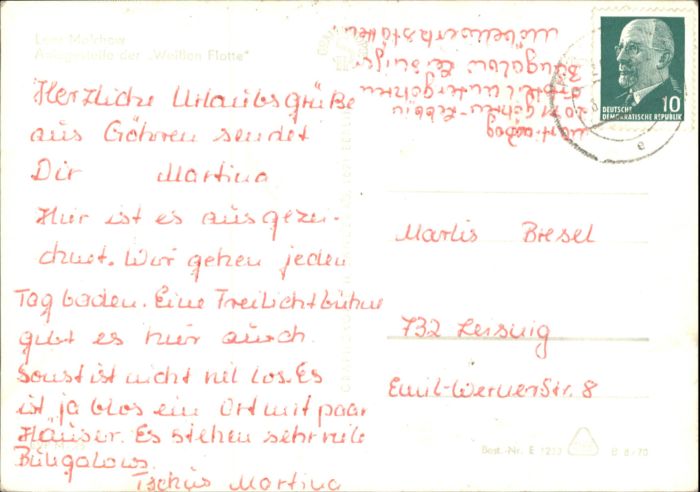 Luez Malchow
Anlegestelle der „Weißen Flotte"
Herzliche Urlaubsgrüße
aus Göhren sendet
Dir Martina
Hier ist es ausgezei-
chnet. Wir gehen jeden
Tag baden. Eine Freilichtbühne
gibt es hier auch.
Sonst ist nicht viel los. Es
ist ja blos ein Ort mit paar
Häuser. Es stehen sehr viele
Bungalows.
Tschüs Martina
Göhren-Lebbin
Bungalow Leisnig
Möbelwerkstätten
DEUTSCHE 10
DEMOKRATISCHE REPUBLIK
e
Marlis Biesel
732 Leisnig
Emil-Werner Str. 8
Best.-Nr. E 1253 B 8/70